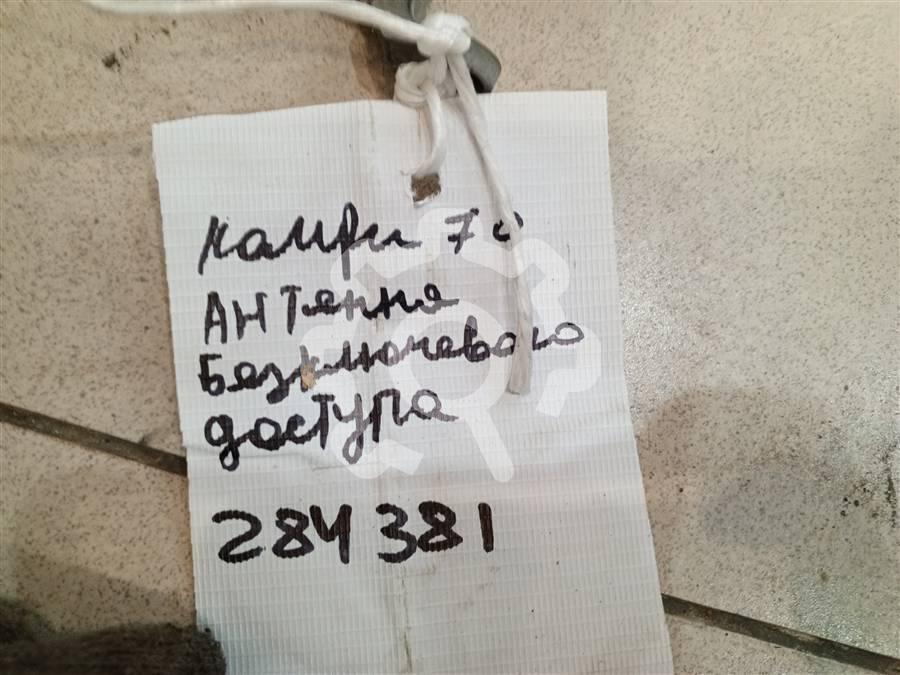 Камри 70
Антенна
Безключевого
доступа
284381